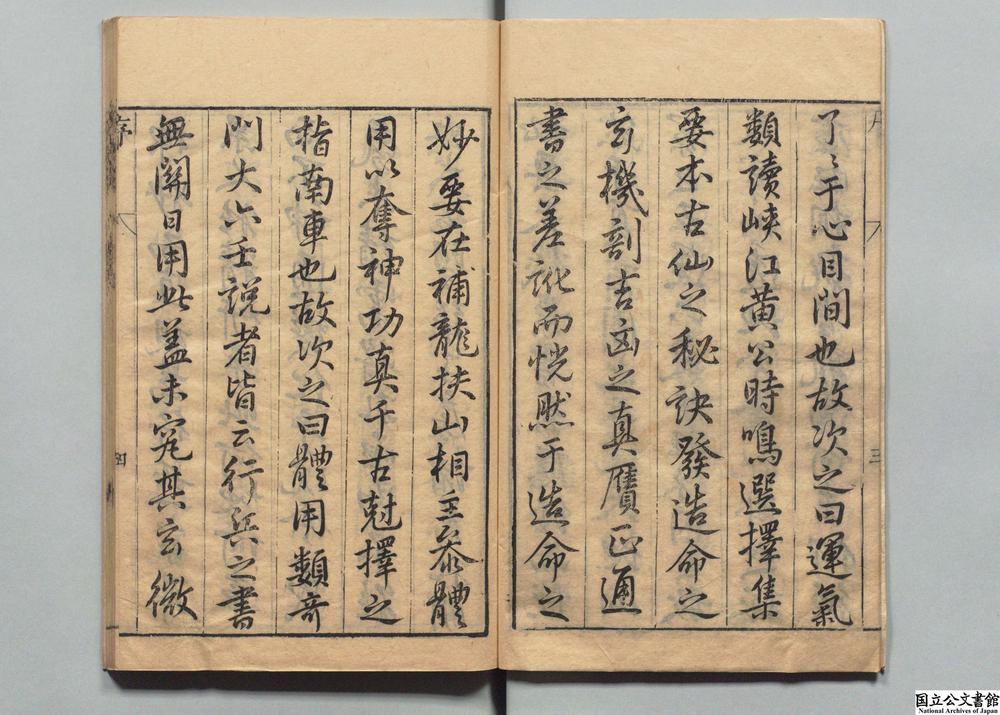 了〻于心目間也故次之曰運氣
類讀峽江黄公時鳴選擇集
要本古仙之秘訣發造命之
玄機剖吉凶之真贗正通
書之差訛而恍然于造命之
妙要在補龍扶山相主叅體
用以奪神功真千古尅擇之
指南車也故次之曰體用類奇
門大六壬說者皆云行兵之書
無關日用此蓋未究其玄微
序
三
四
国立公文書館
National Archives of Japan